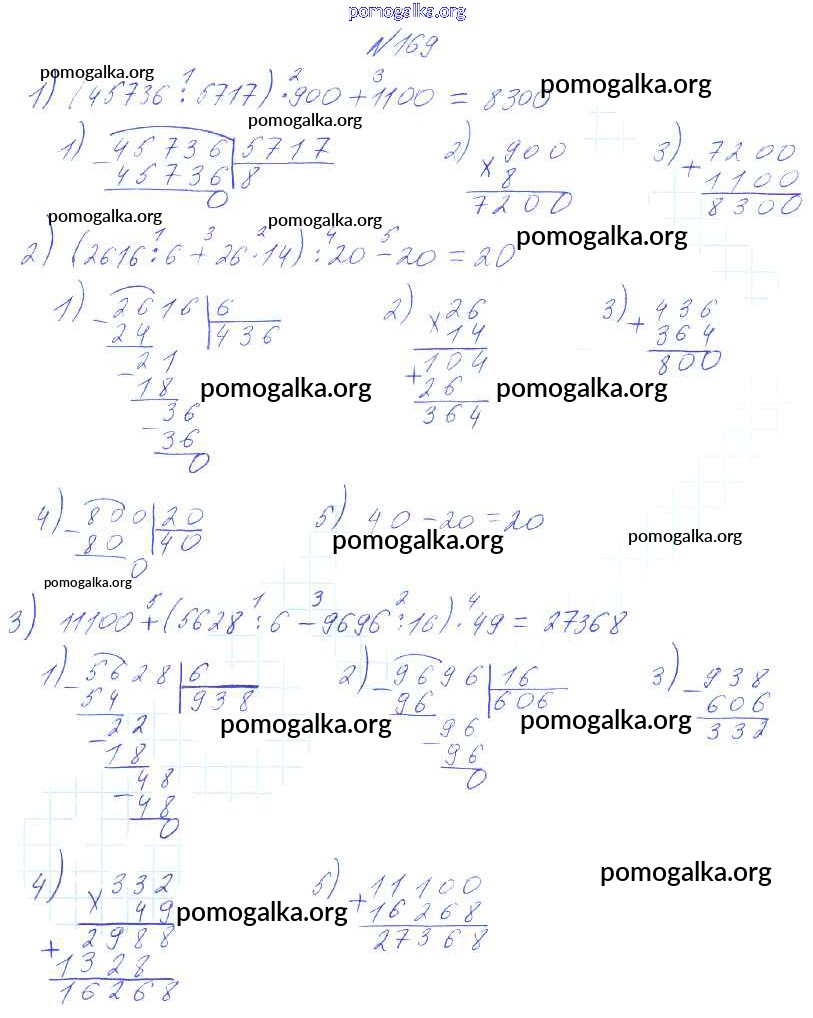 pomogalka.org
№169
pomogalka.org
1) (45736 : 5717) · 900 + 1100 = 8300 pomogalka.org
1 2 3
pomogalka.org
1) - 45736 | 5717 2) × 900 3) + 7200
45736 | 8 8 1100
0 7200 8300
pomogalka.org pomogalka.org pomogalka.org
1 3 2 4 5
2) (2616 : 6 + 26 · 14) : 20 - 20 = 20
1) - 2616 | 6 2) × 26 3) + 436
24 | 436 14 364
- 21 104 800
18 + 26
pomogalka.org pomogalka.org
36 364
- 36
0
4) - 800 | 20 5) 40 - 20 = 20
80 | 40 pomogalka.org pomogalka.org
0
pomogalka.org
5 1 3 2 4
3) 11100 + (5628 : 6 - 9696 : 16) · 49 = 27368
1) - 5628 | 6 2) - 9696 | 16 3) - 938
54 | 938 96 | 606 606
- 22 - 96 332
pomogalka.org pomogalka.org
18 96
48 0
- 48
0
4) × 332 5) + 11100 pomogalka.org
49 pomogalka.org 16268
2988 27368
+ 1328
16268